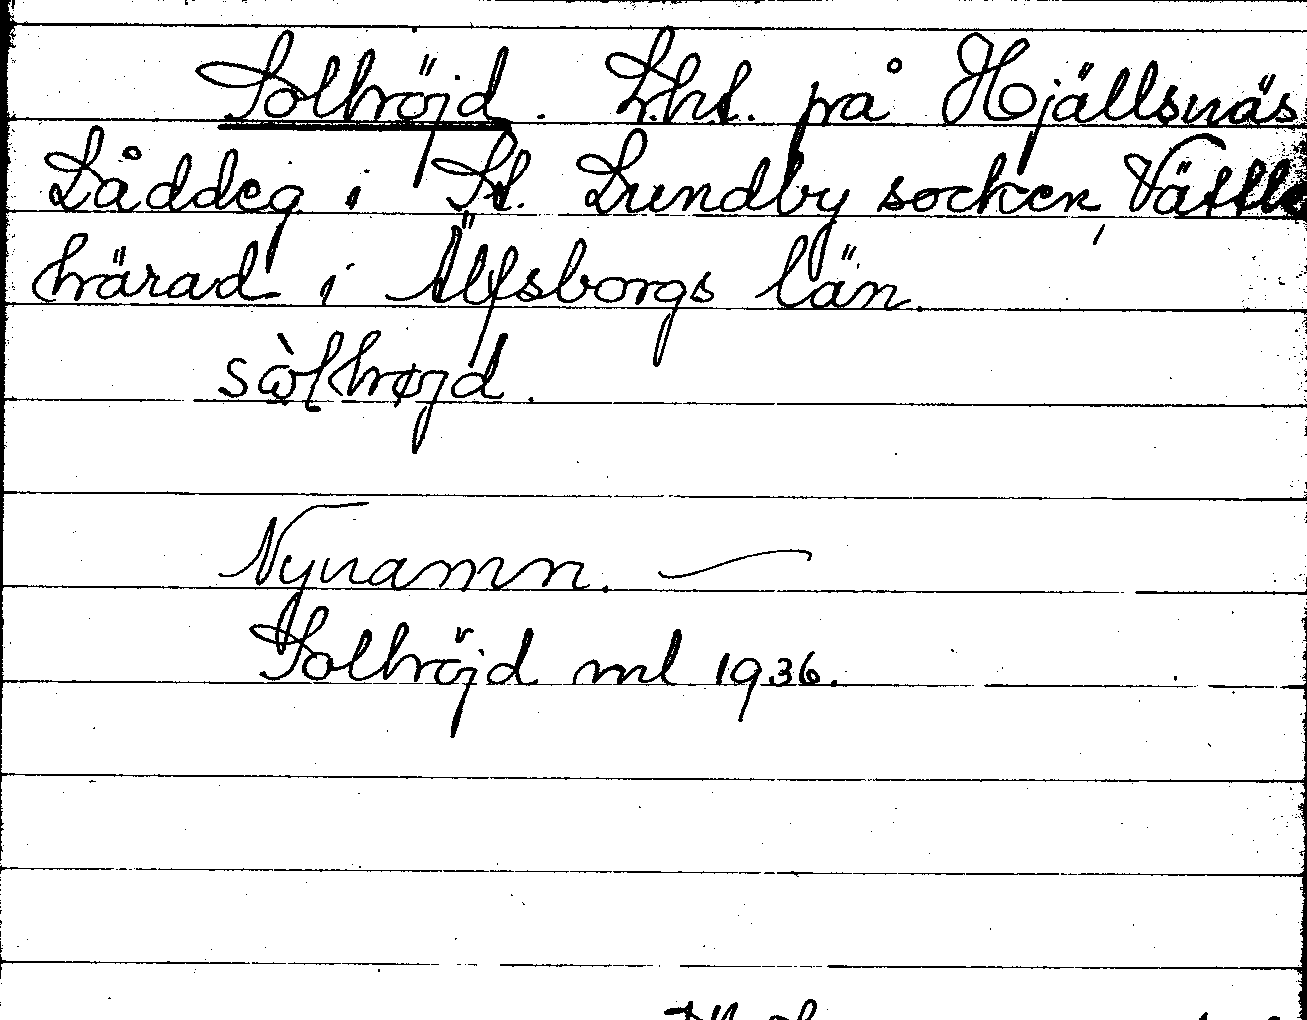 Solhöjd. Lht. på Hjällsnäs
Låddeg i St. Lundby socken, Vättle
härad i Älfsborgs län.
sὼlhøjd.
Nynamn.
Solhöjd ml 1936.